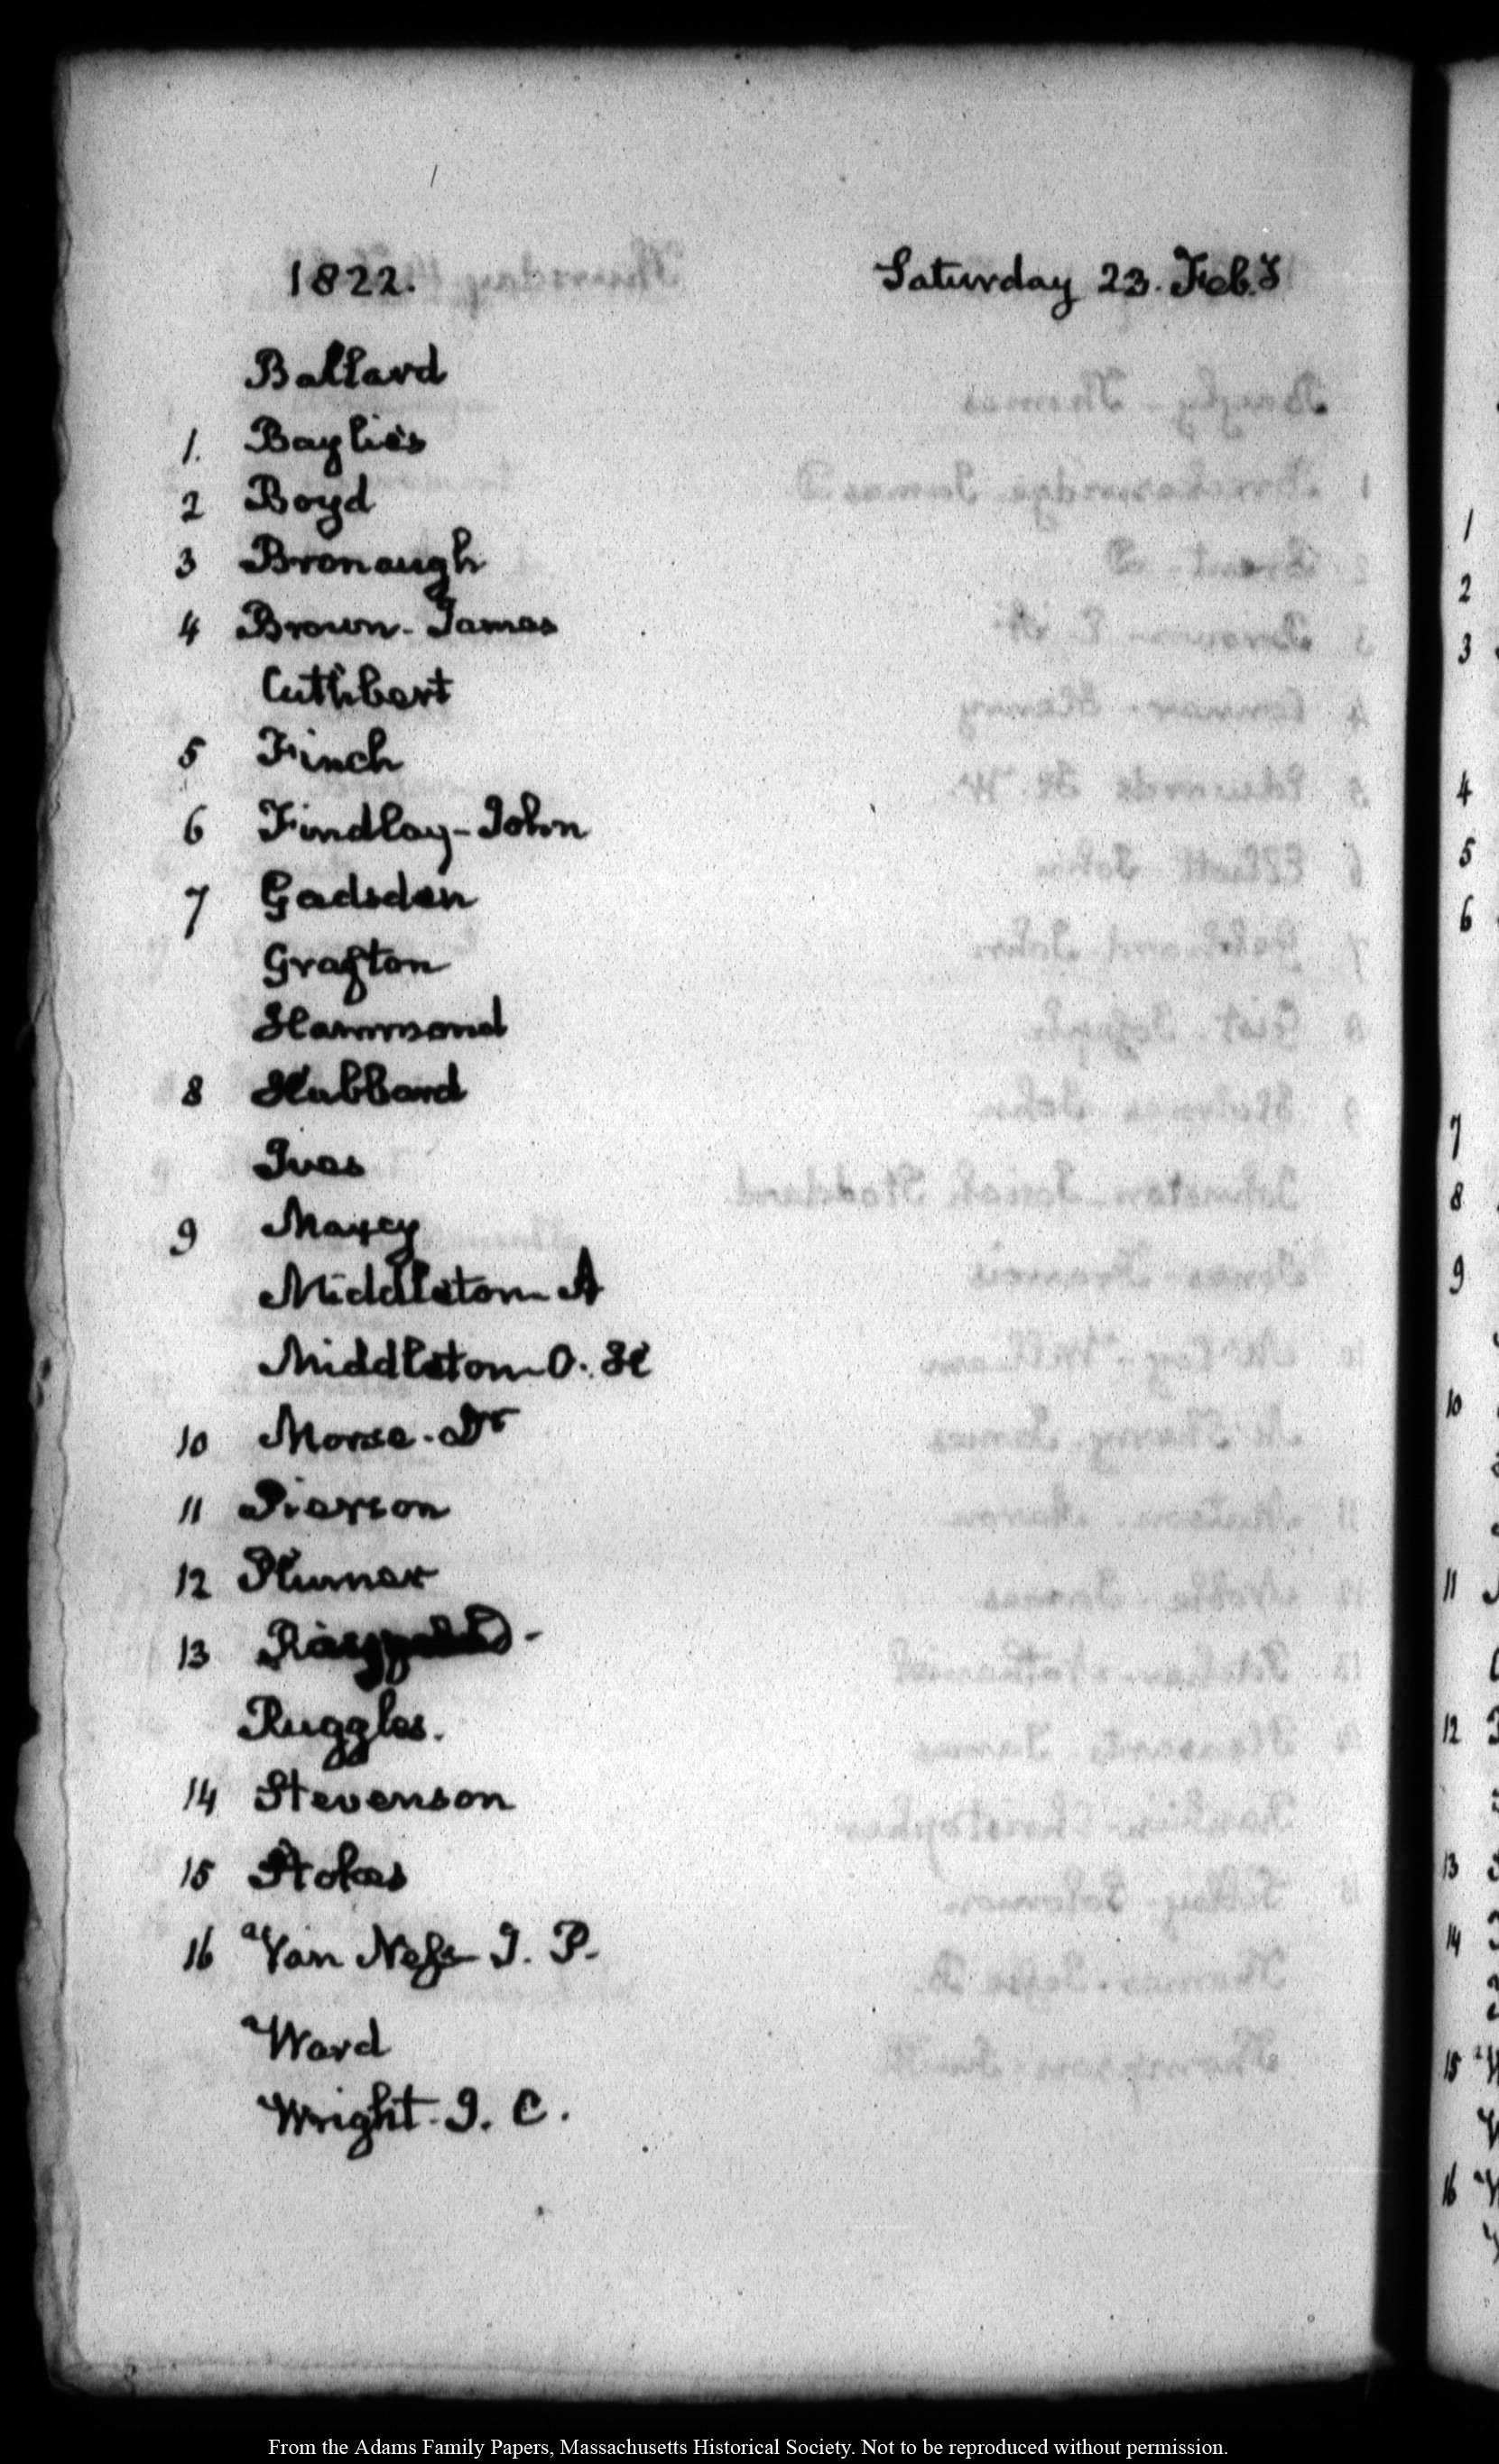 1822. Saturday 23. Feb.y
Ballard
1. Baylies
2 Boyd
3 Bronaugh
4 Brown - James
Cuthbert
5 Finch
6 Findlay - John
7 Gadsden
Grafton
Hammond
8 Hubbard
Ives
9 Maxcy
Middleton - A
Middleton - O. H
10 Morse - Dr
11 Pierson
12 Plumer
13
Ruggles.
14 Stevenson
15 Stokes
16 Van Ness - J. P.
Ward
Wright - J. C.
1
2
3
4
5
6
7
8
9
10
11
12
13
14
15
16
From the Adams Family Papers, Massachusetts Historical Society. Not to be reproduced without permission.